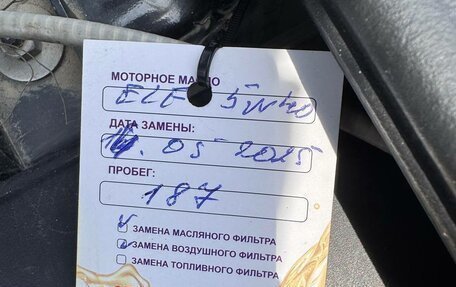 МОТОРНОЕ МАСЛО
ELF 5W40
ДАТА ЗАМЕНЫ:
14.05 2025
ПРОБЕГ:
187
ЗАМЕНА МАСЛЯНОГО ФИЛЬТРА
ЗАМЕНА ВОЗДУШНОГО ФИЛЬТРА
ЗАМЕНА ТОПЛИВНОГО ФИЛЬТРА